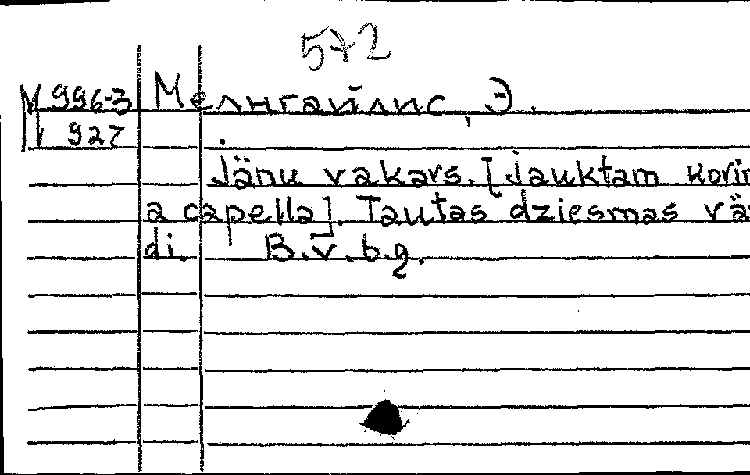 572
М 996-3 Мелнгайлис, Э.
М 927
Jāņu vakars. [Jauktam korim
a capella]. Tautas dziesmas vār
di. B.v.b.g.